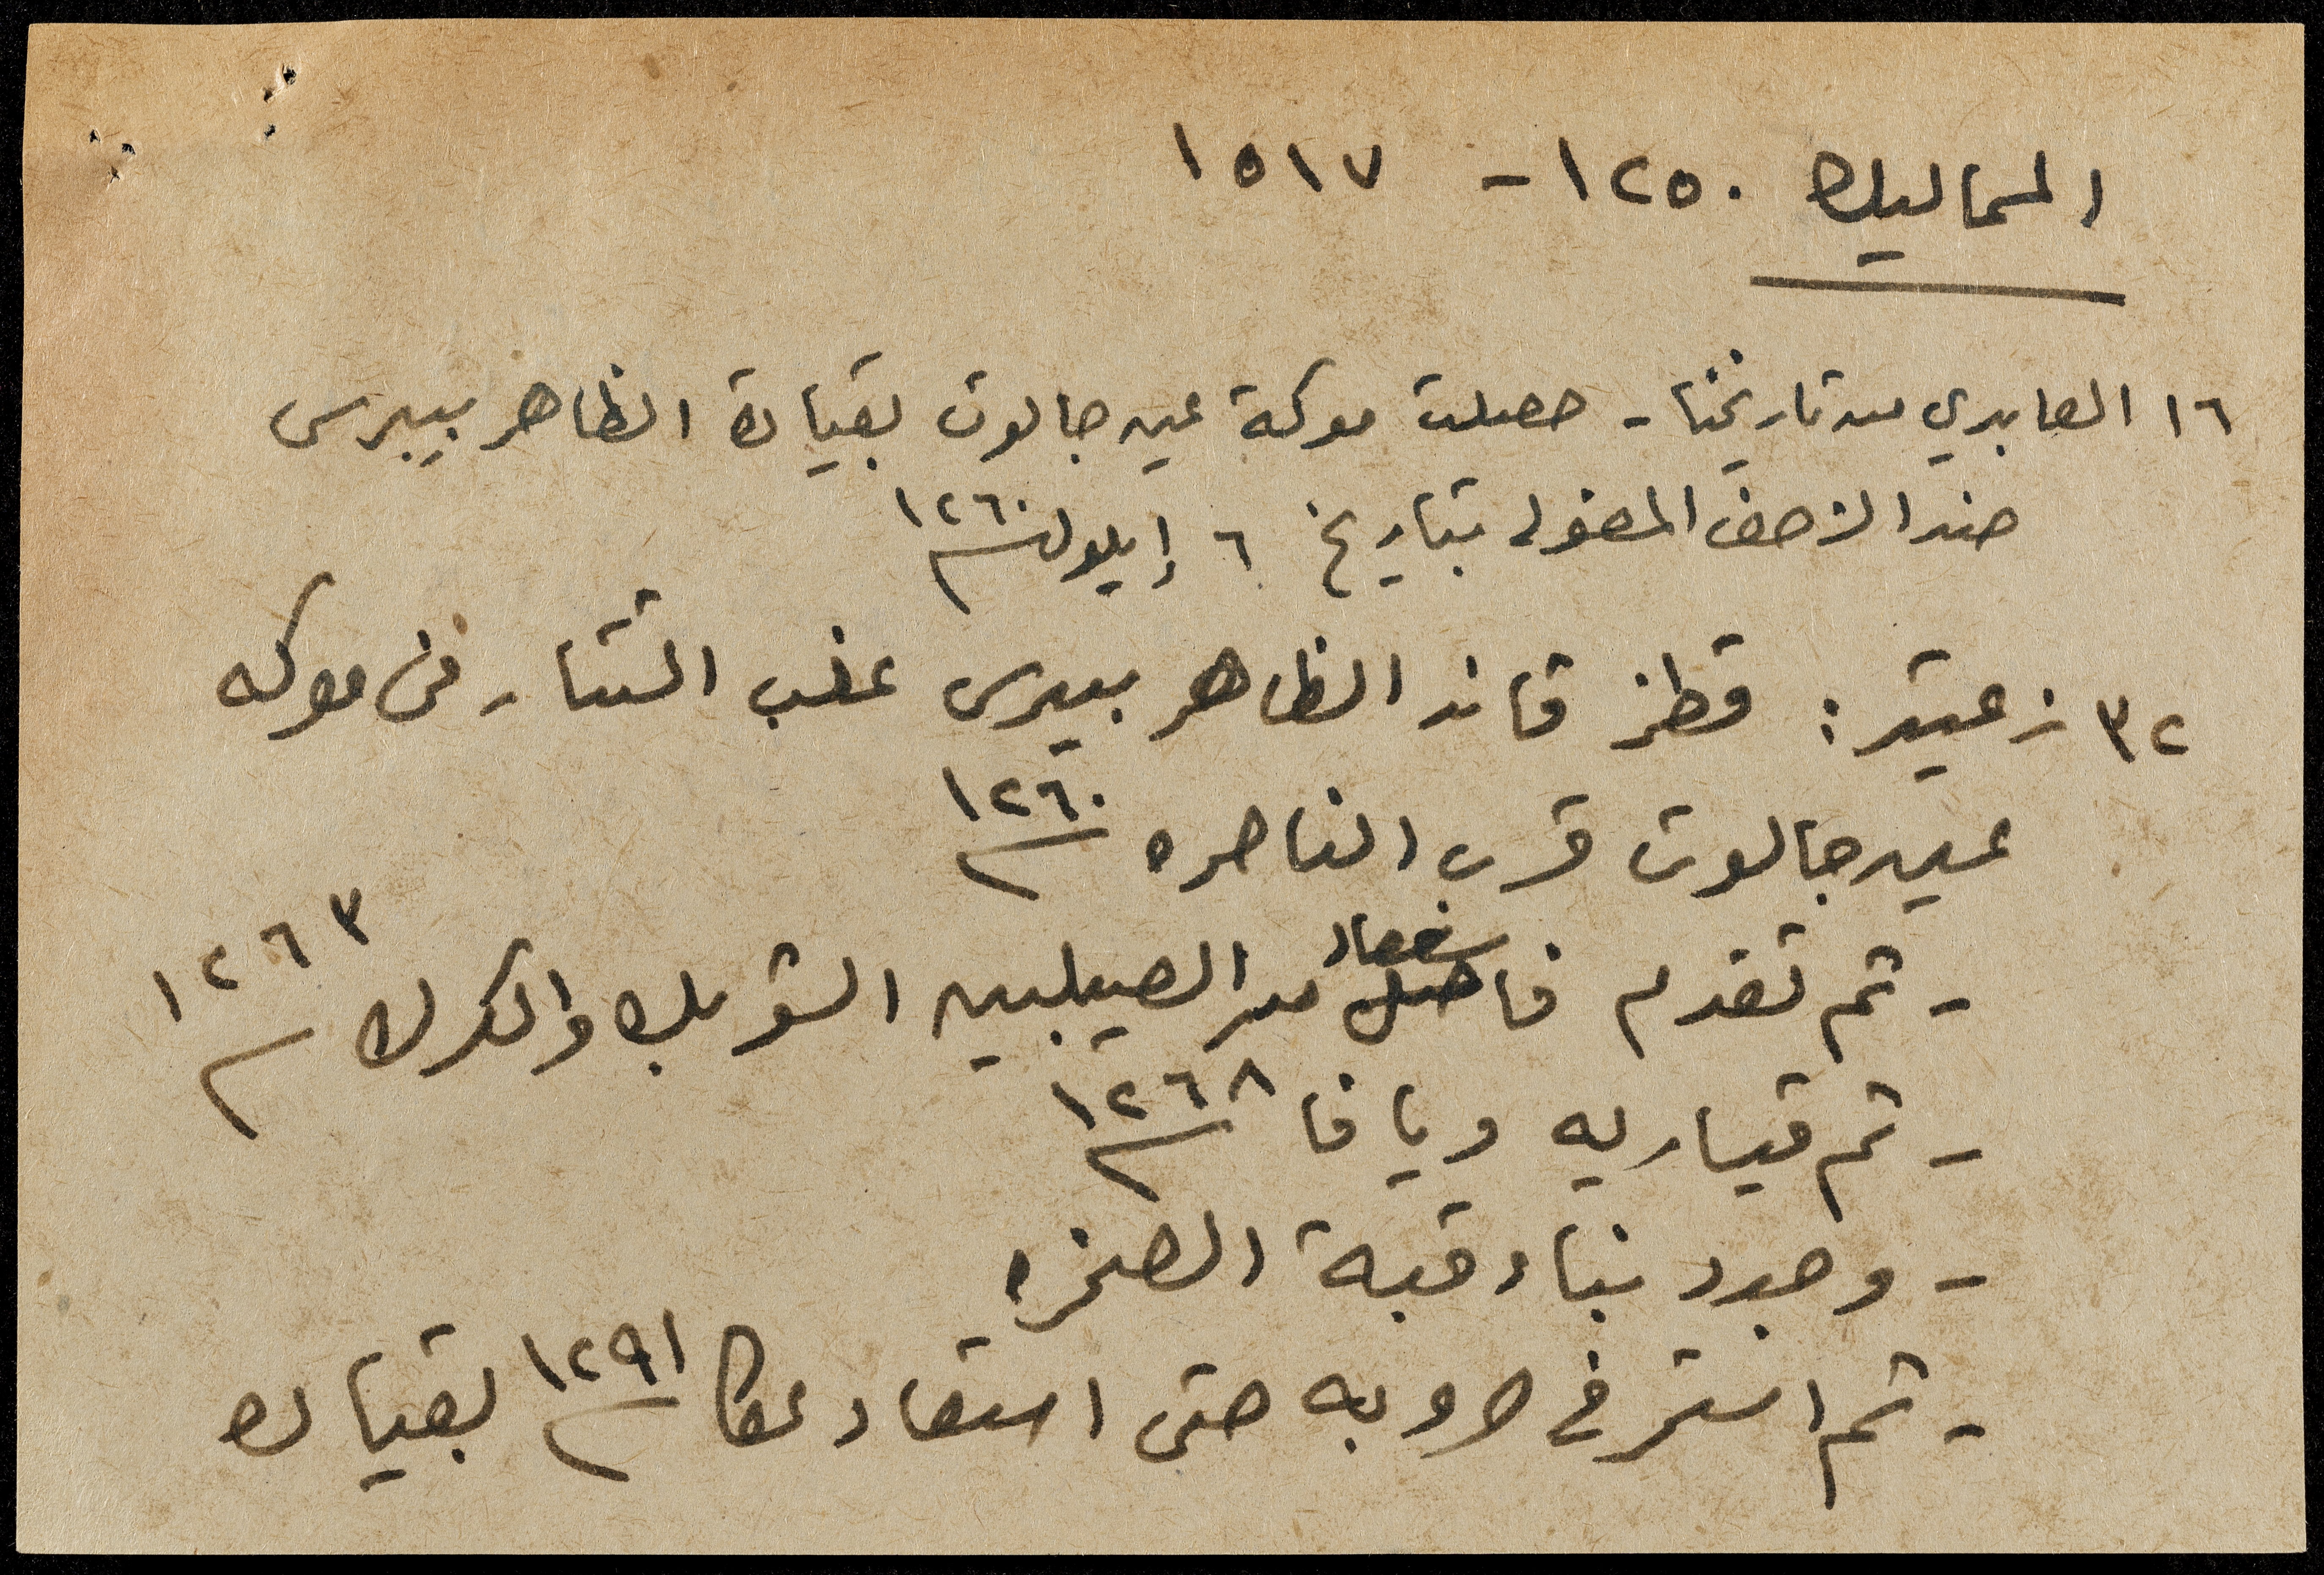 المماليك ١٢٥٠ - ١٥١٧
١٦ العابدي من تاريخنا - حصلت معركة عين جالوت بقيادة الظاهر بيبرس
ضد الزحف المغولي بتاريخ ٦ إيلول ١٢٦٠
٣٢ زعيتر : قطز قائد الظاهر بيبرس غلب التتار في معركه
عين جالوت قرب الناصره ١٢٦٠
- ثم تقدم فاستعاد من الصليبين الشوبك والكرك ١٢٦٣
- ثم قيساريه ويافا ١٢٦٨
- وجدد بناء قبة الصخره
- ثم استمر في حروبه حتى استعاد عكا ١٢٩١ بقياده